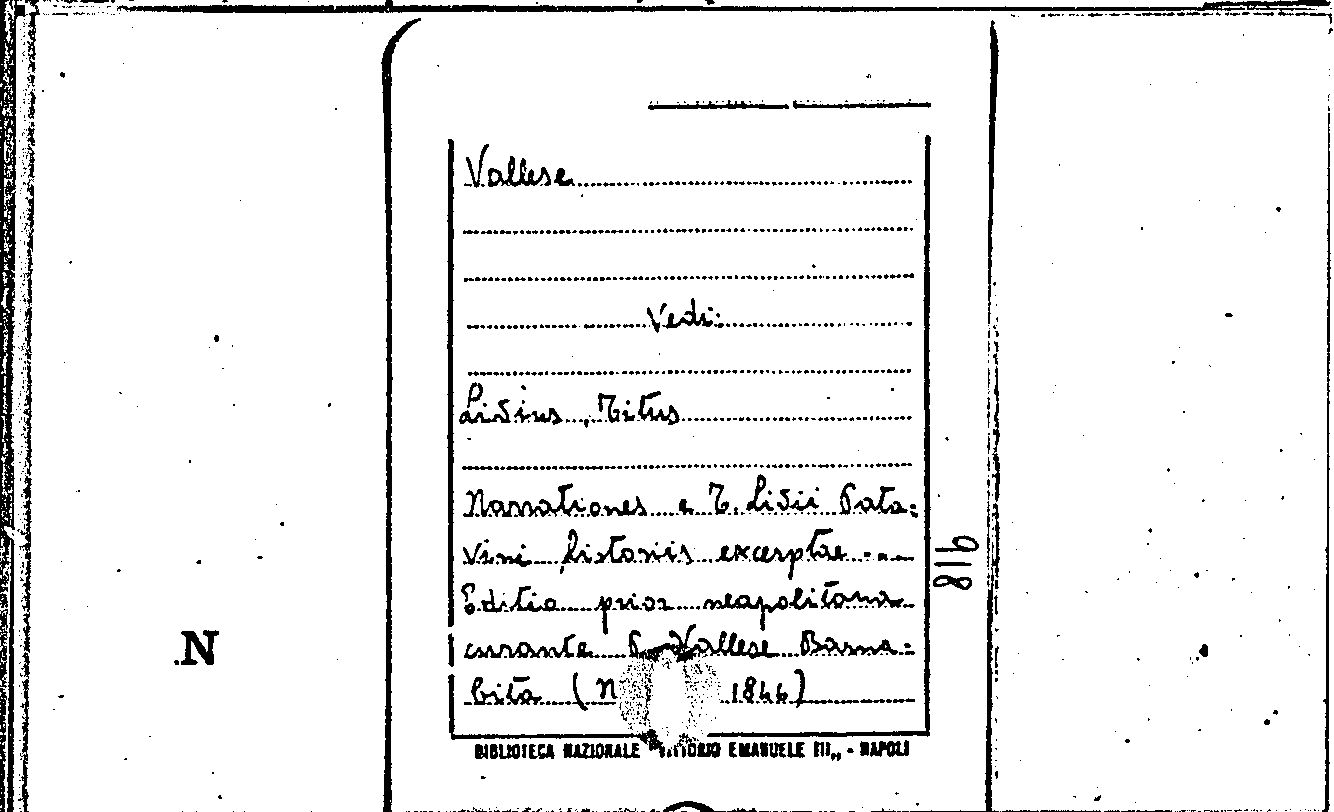 Vallese
Vedi:
Livius, Titus
Narrationes e T. Livii Pata=
vini historiis excerptae ---
Editio prior neapolitana
curante P. Vallese Barna=
bita (N 1846)
BIBLIOTECA NAZIONALE "VITTORIO EMANUELE III„ - NAPOLI
918
N